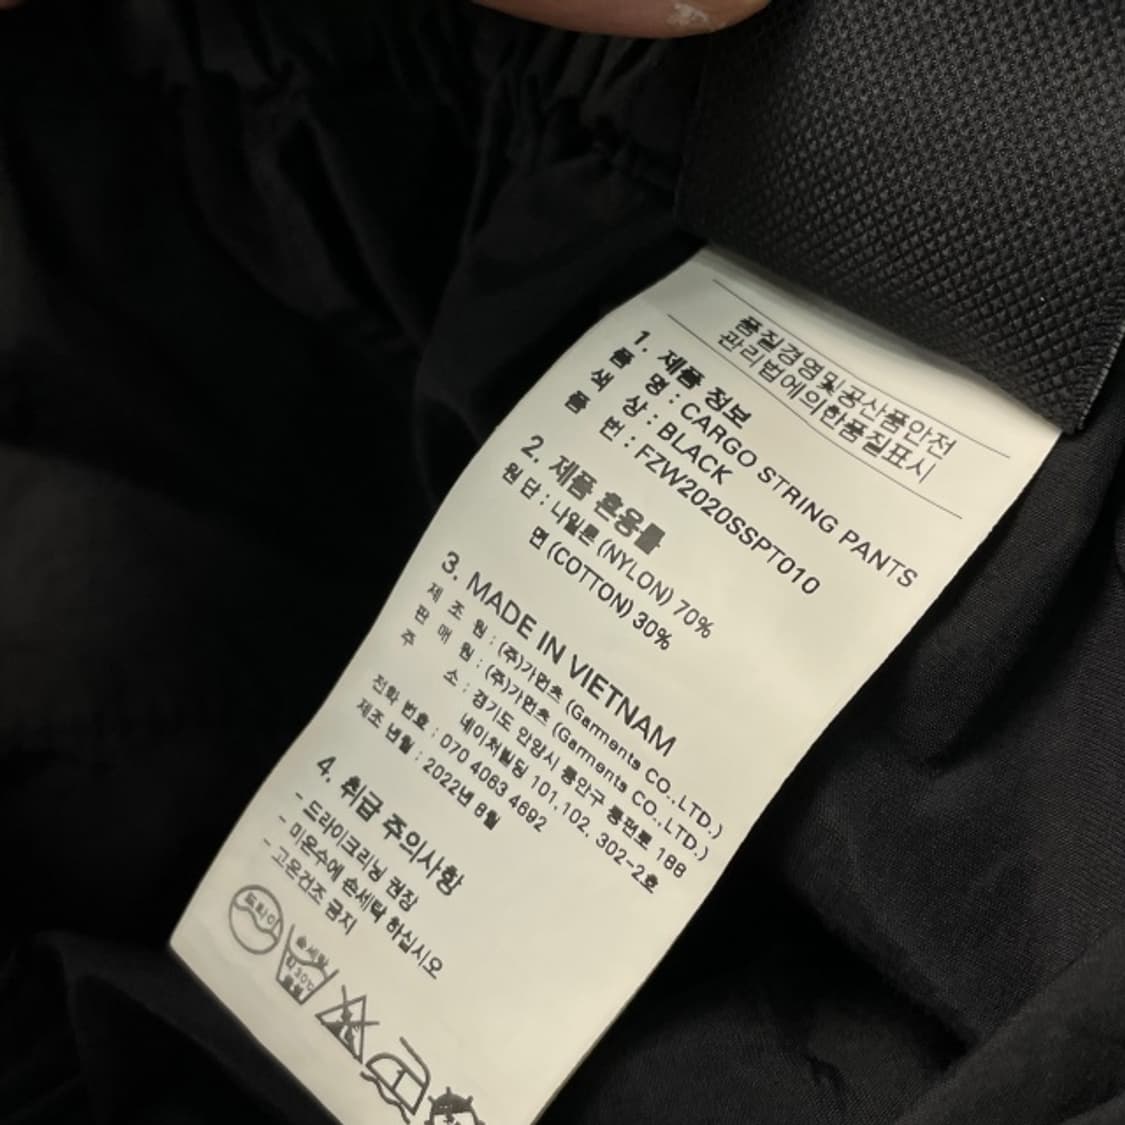 품질경영및공산품안전
관리법에의한품질표시
1. 제품 정보
품 명 : CARGO STRING PANTS
색 상 : BLACK
품 번 : FZW2020SSPT010
2. 제품 혼용률
원단 : 나일론 (NYLON) 70%
면 (COTTON) 30%
3. MADE IN VIETNAM
제 조 원 : (주)가먼츠 (Garments CO.,LTD.)
판 매 원 : (주)가먼츠 (Garments CO.,LTD.)
주 소 : 경기도 안양시 동안구 동편로 188
네이처빌딩 101,102, 302-2호
전화 번호 : 070 4063 4692
제조 년월 : 2022년 6월
4. 취급 주의사항
- 드라이크리닝 권장
- 미온수에 손세탁 하십시오
- 고온건조 금지
드라이
손세탁
약30℃
중성